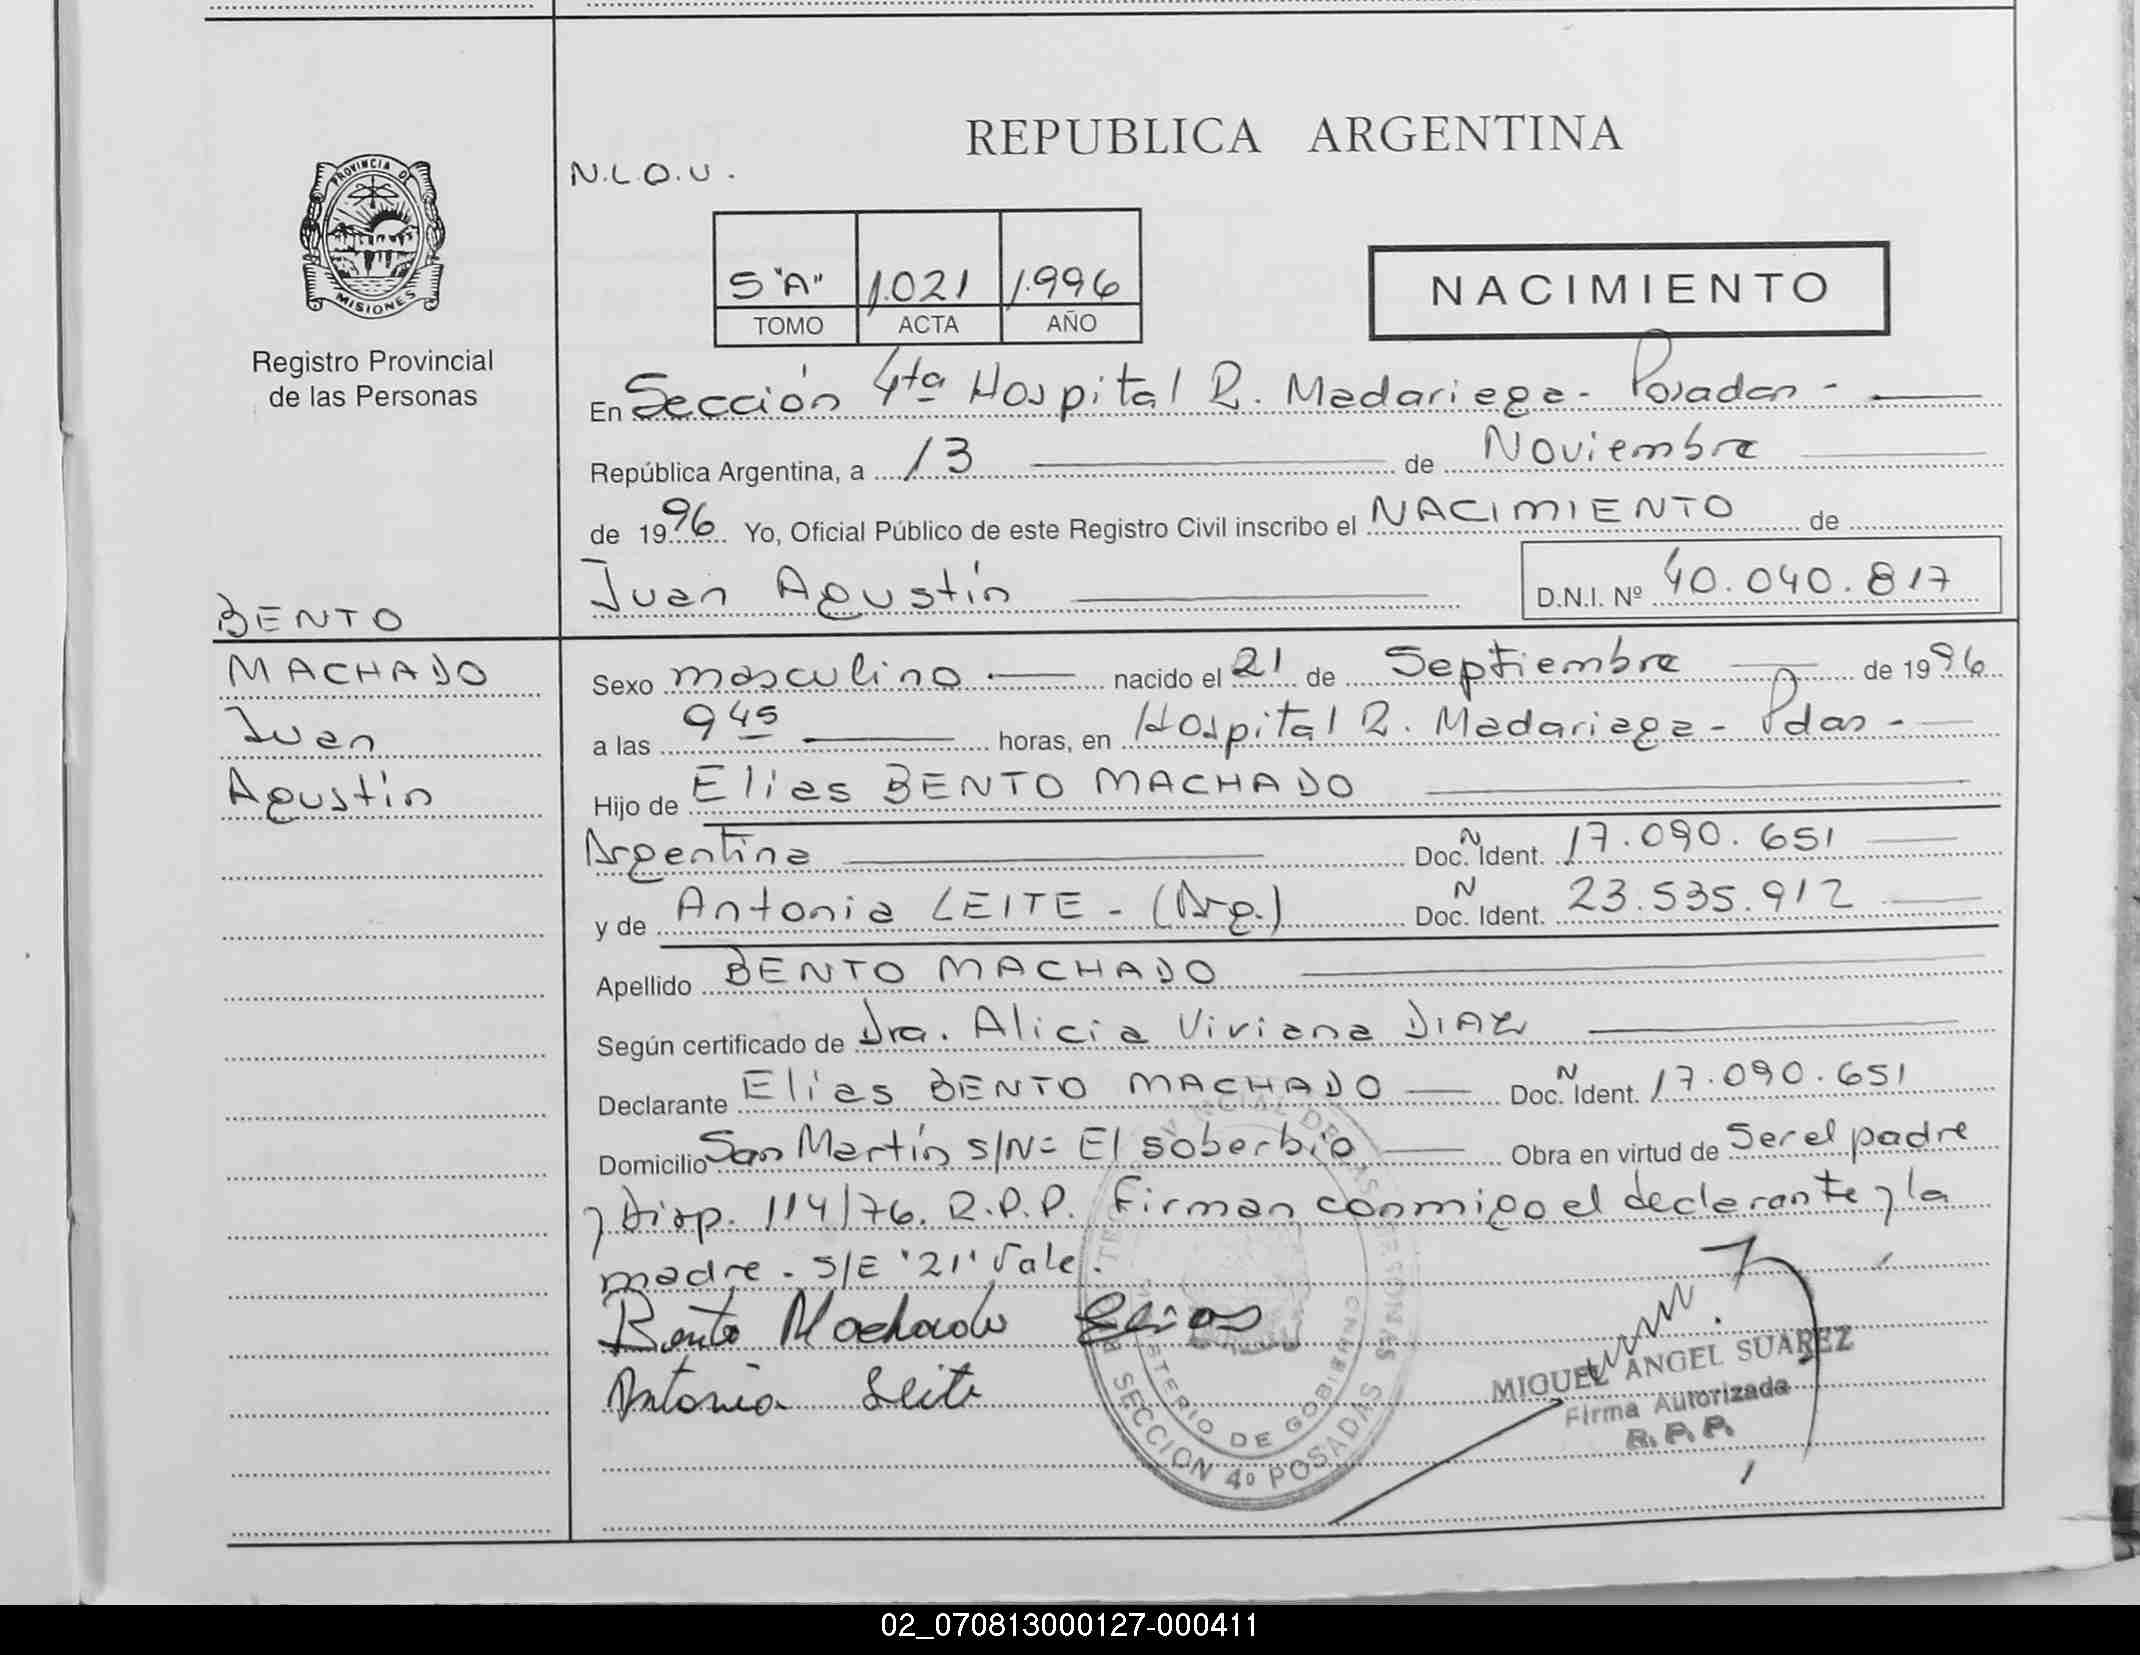 REPUBLICA ARGENTINA
N.L.O.U.
PROVINCIA DE
MISIONES
Registro Provincial
de las Personas
5 "A" 1.021 1.996
TOMO ACTA AÑO
NACIMIENTO
En Sección 4ta Hospital R. Madariaga - Posadas -
República Argentina, a 13 de Noviembre
de 1996 Yo, Oficial Público de este Registro Civil inscribo el NACIMIENTO de
Juan Agustín D.N.I. Nº 40.040.817
BENTO
MACHADO
Juan
Agustín
Sexo masculino nacido el 21 de Septiembre de 1996
a las 9 45 horas, en Hospital R. Madariaga - Pdas -
Hijo de Elias BENTO MACHADO
Argentina Doc. N Ident. 17.090.651
y de Antonia LEITE - (Arg.) Doc. N Ident. 23.535.912
Apellido BENTO MACHADO
Según certificado de Dra. Alicia Viviana DIAZ
Declarante Elias BENTO MACHADO Doc. N Ident. 17.090.651
Domicilio San Martín S/N= El soberbio Obra en virtud de Ser el padre
y Disp. 114/76. R.P.P. Firman conmigo el declarante y la
madre. S/E '21' Vale.
Bento Machado Elias
Antonia Leite
MINISTERIO DE GOBIERNO
SECCION 4º POSADAS
MIGUEL ANGEL SUAREZ
Firma Autorizada
R. P. P.
02_070813000127-000411